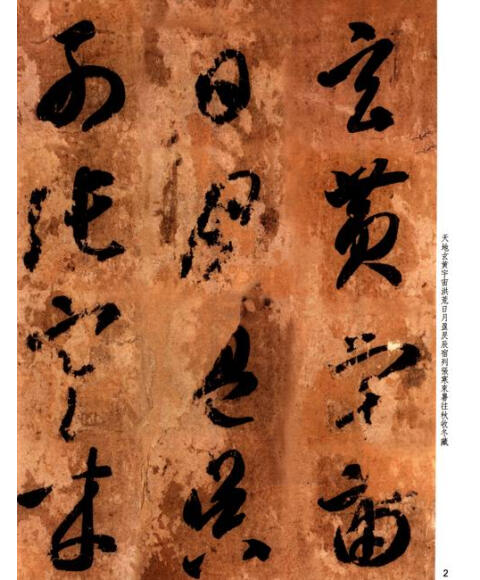 玄黄宇宙
日月盈昃
列張寒來
天地玄黄宇宙洪荒日月盈昃辰宿列張寒來暑往秋收冬藏
2